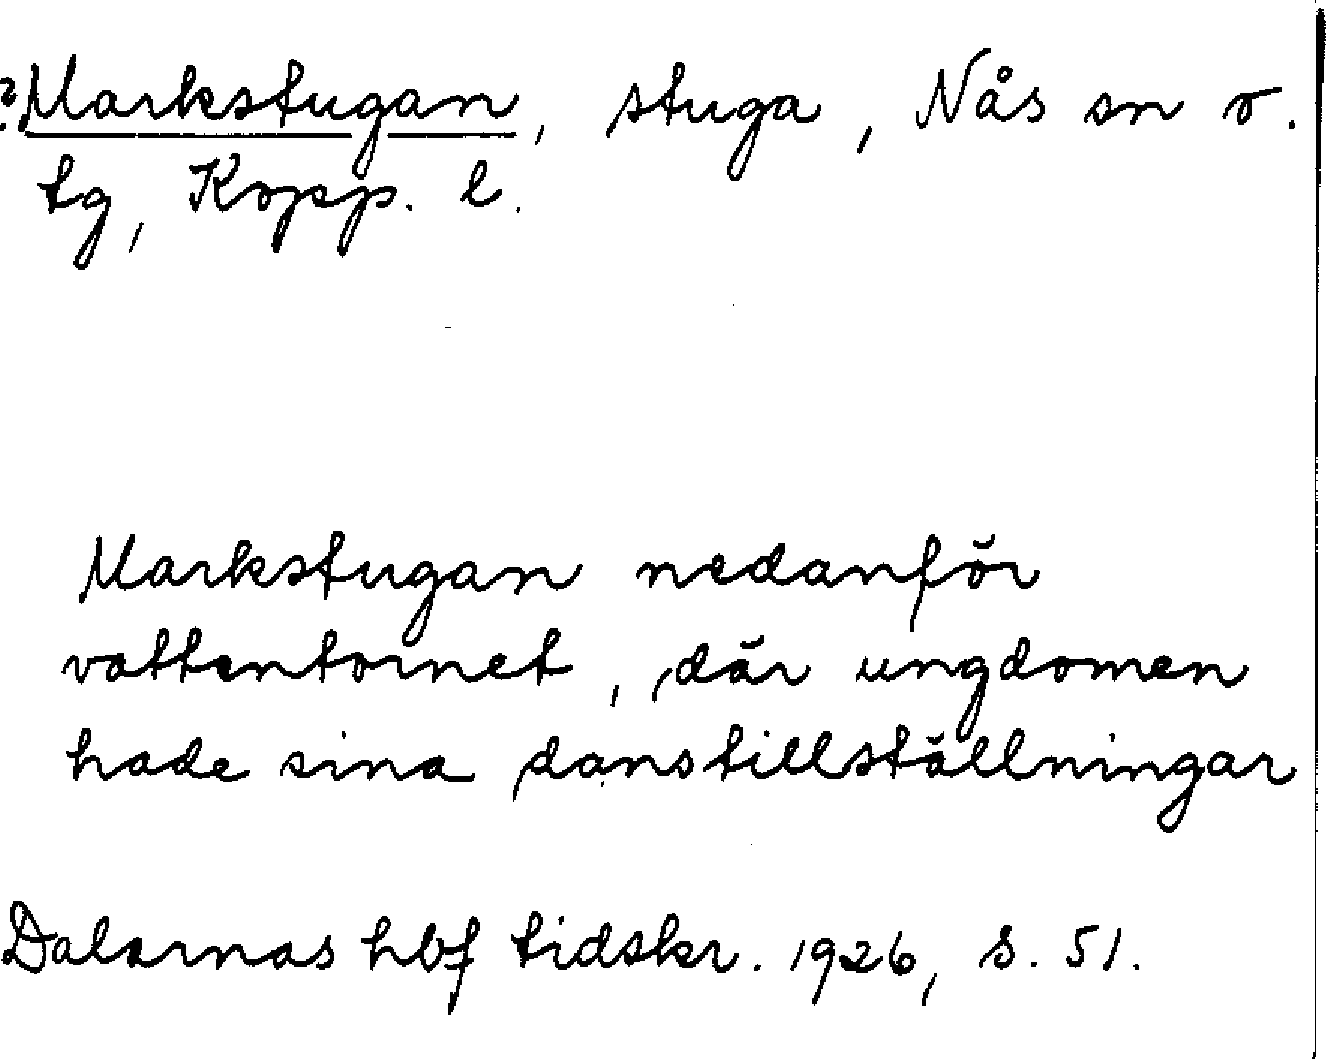 ?Markstugan, stuga, Nås sn o.
tg, Kopp. l.
Markstugan nedanför
vattentornet, där ungdomen
hade sina danstillställningar
Dalarnas hbf tidskr. 1926, s. 51.